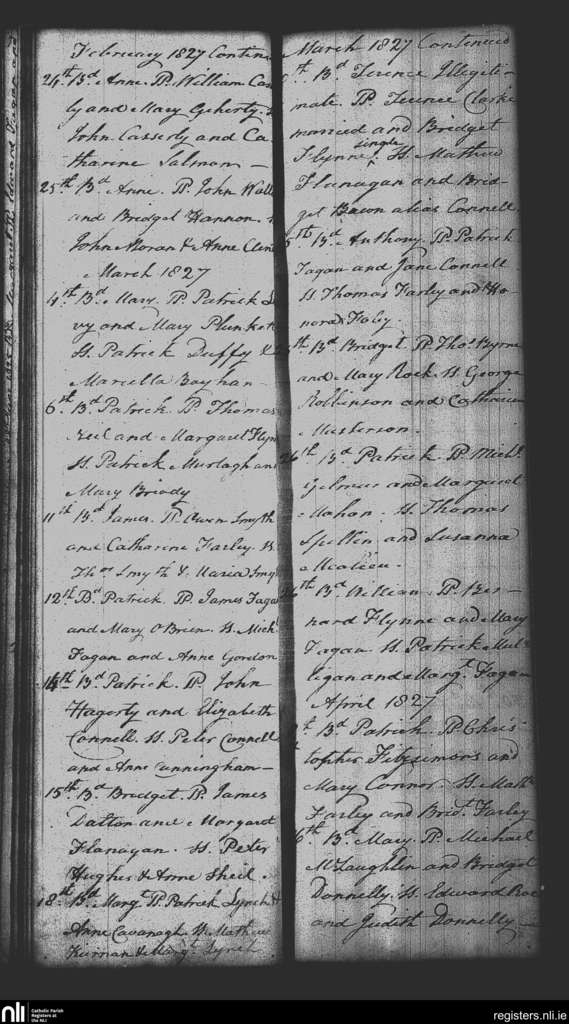 February 1827 Contin
24th Bd Anne. P. William Cas
ly and Mary Geherty.
John Casserly and Ca
tharine Salmon
25th Bd Anne. P. John Wall
and Bridget Hannon.
John Moran & Anne Clen
March 1827
4th Bd Mary. P. Patrick
vy and Mary Plunket
S. Patrick Duffy &
Marcella Boyhan
6th Bd Patrick P. Thomas
and Margaret Flyn
S. Patrick Murtagh an
Mary Briody
11th Bd James. P. Owen Smyth
and Catharine Farley. S.
Thos Smyth & Maria Smy
12th Bd Patrick P. James Faga
and Mary O'Brien. S. Mich
Fagan and Anne Gordon
14th Bd Patrick. P. John
Hagerty and Elizabeth
Connell. S. Peter Connell
and Anne Cunningham
15th Bd Bridget. P. James
Dalton and Margaret
Flanagan. S. Peter
Hughes & Anne Sheil.
18th Bd Margt P. Patrick Lynch &
Anne Cavanagh. S. Mathew
Kiernan & Margt Lynch
March 1827 Continued
th Bd Terence Illegiti-
mate. P. Terence Clarke
married and Bridget
Flynne single. S. Mathew
Flanagan and Brid-
get Bawn alias Connell
th Bd Anthony. P. Patrick
Fagan and Jane Connell
S. Thomas Farley and Ho-
nora Foley.
th Bd Bridget. P. Thos Byrne
and Mary Rock. S. George
Rollinson and Catharine
Masterson.
26th Bd Patrick. P. Michl
and Margaret
Mahon. S. Thomas
and Susanna
th Bd William. P. Ber-
nard Flynne and Mary
Fagan S. Patrick Mul-
ligan and Margt Fagan
April 1827
th Bd Patrick. P. Chris-
topher Fitzsimons and
Mary Connor. S. Math
Farley and Bridt Farley
6th Bd Mary. P. Michael
McLaughlin and Bridget
Donnelly. S. Edward
and Judith Donnelly
nli
Catholic Parish
Registers at
the NLI
registers.nli.ie